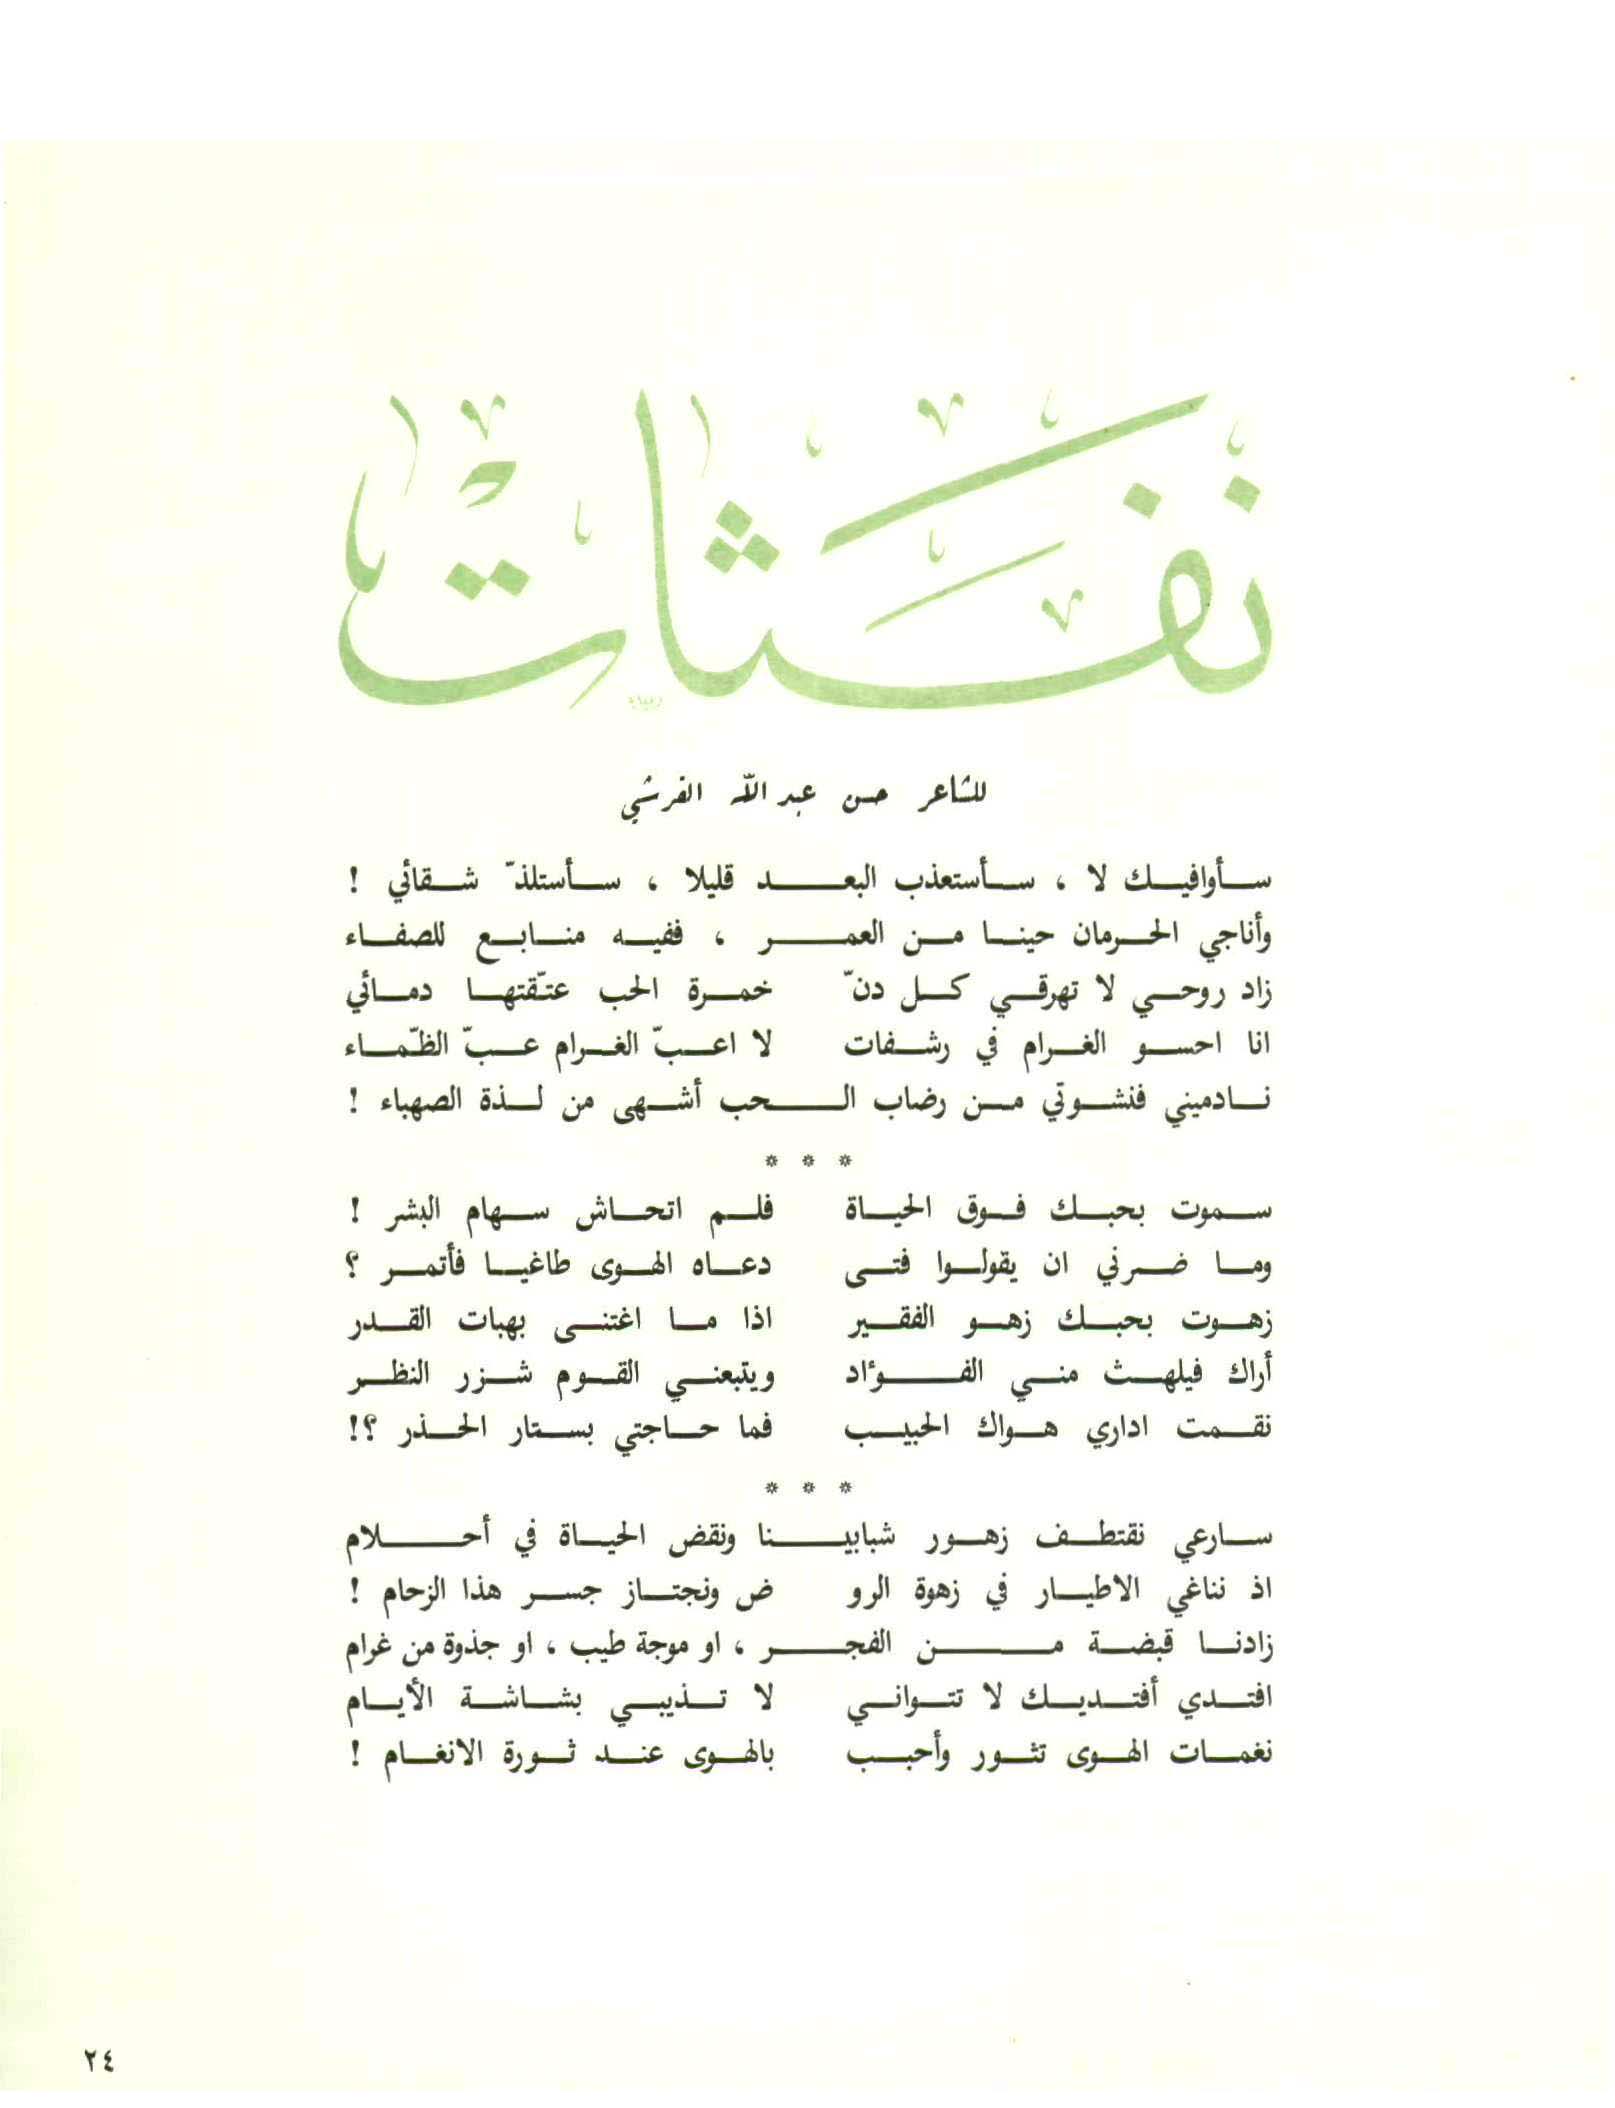 نفثات
للشاعر حسن عبد الله القرشي
سأوافيك لا ، سأستعذب البعد قليلا ، سأستلذّ شقائي !
وأناجي الحرمان حينا من العمر ، ففيه منابع للصفاء
زاد روحي لا تهرقي كل دنّ خمرة الحب عتّقتها دمائي
انا احسو الغرام في رشفات لا اعبّ الغرام عبّ الظّماء
نادميني فنشوتي من رضاب الحب أشهى من لذة الصهباء !
* * *
سموت بحبك فوق الحياة فلم اتحاش سهام البشر !
وما ضرني ان يقولوا فتى دعاه الهوى طاغيا فأتمر ؟
زهوت بحبك زهو الفقير اذا ما اغتنى بهبات القدر
أراك فيلهث مني الفؤاد ويتبعني القوم شزر النظر
نقمت اداري هواك الحبيب فما حاجتي بستار الحذر ؟!
* * *
سارعي نقتطف زهور شبابينا ونقض الحياة في أحلام
اذ نناغي الاطيار في زهوة الرو ض ونجتاز جسر هذا الزحام !
زادنا قبضة من الفجر ، او موجة طيب ، او جذوة من غرام
افتدي أفتديك لا تتواني لا تذيبي بشاشة الأيام
نغمات الهوى تثور وأحبب بالهوى عند ثورة الانغام !
٢٤